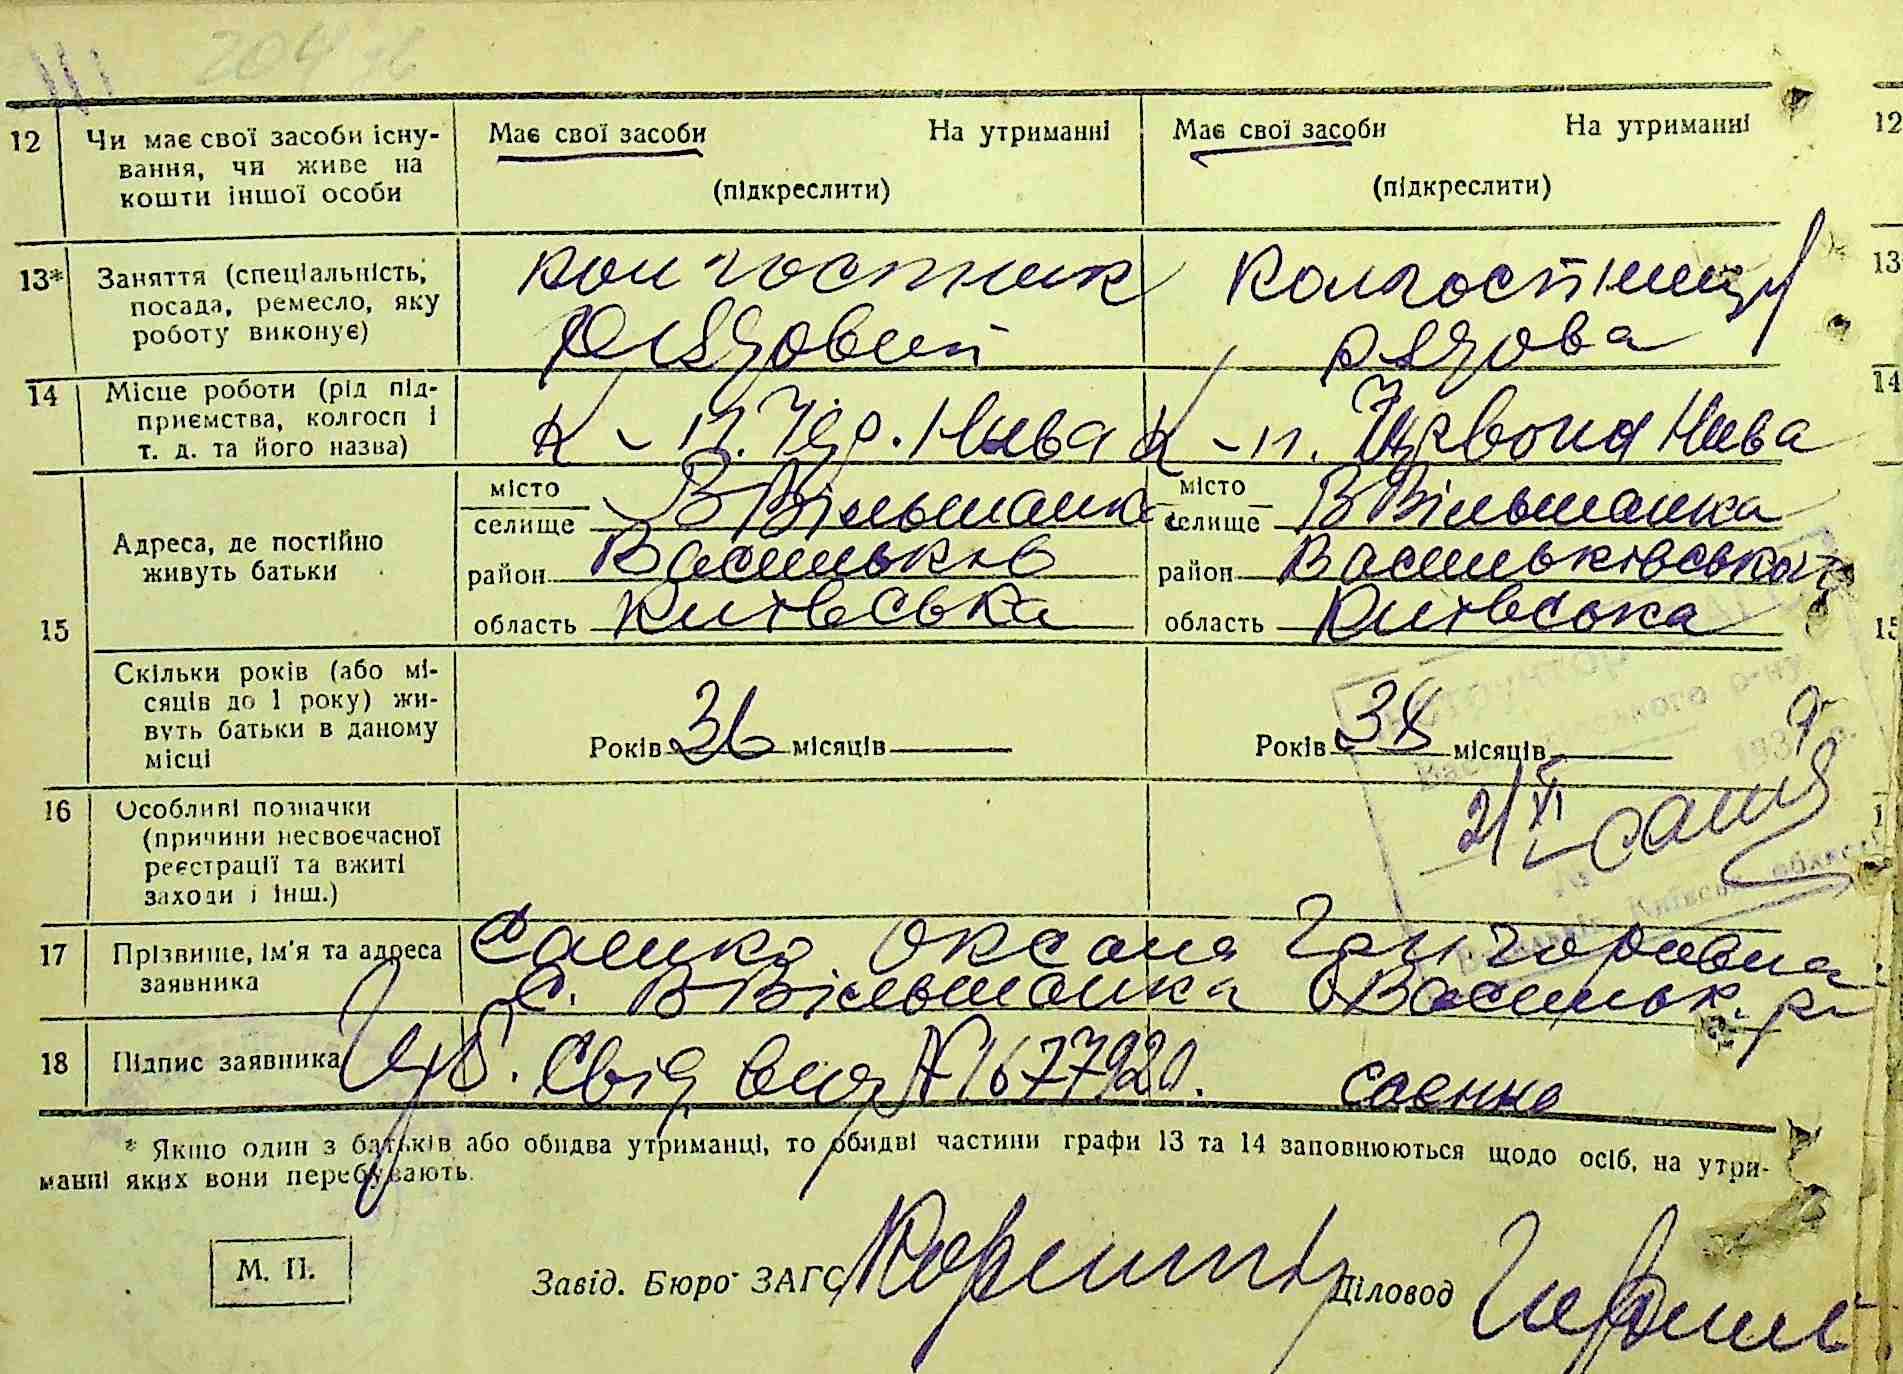 12 Чи має свої засоби існу- Має свої засоби На утриманні Має свої засоби На утриманні 12
вання, чи живе на
кошти іншої особи (підкреслити) (підкреслити)
13* Заняття (спеціальність, колгостник колгостниця 13
посада, ремесло, яку
роботу виконує) рядовий рядова
14 Місце роботи (рід під- 14
приємства, колгосп і К-п. Чер. Нива К-п. Червона Нива
т. д. та його назва)
місто В Вільшанка місто В Вільшанка
селище селище
Адреса, де постійно
живуть батьки район Васильків район Васильківська
15 область Київська область Київська 15
Скільки років (або мі-
сяців до 1 року) жи-
вуть батьки в даному Років 36 місяців Років 38 місяців
місці
16 Особливі позначки
(причини несвоєчасної 21/XI
реєстрації та вжиті
заходи і інш.)
17 Прізвище, ім'я та адреса Саєнко Оксана Григоровна
заявника с. В Вільшанка Васильк. р
18 Підпис заявника Свід вид № 1677920. саєнко
* Якщо один з батьків або обидва утриманці, то обидві частини графи 13 та 14 заповнюються щодо осіб, на утри-
манні яких вони перебувають.
М. П. Завід. Бюро ЗАГС Діловод